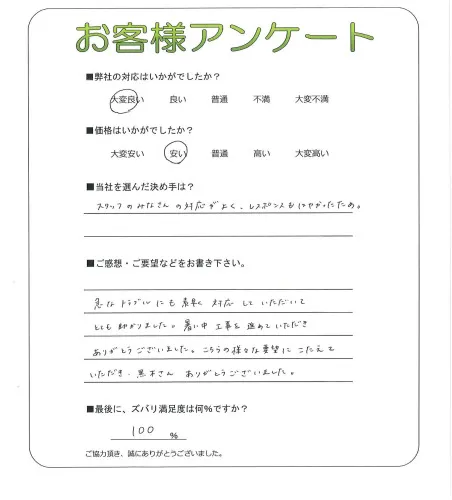 お客様アンケート
■弊社の対応はいかがでしたか？
大変良い 良い 普通 不満 大変不満
■価格はいかがでしたか？
大変安い 安い 普通 高い 大変高い
■当社を選んだ決め手は？
スタッフのみなさんの対応がよく、レスポンスもはやかったため。
■ご感想・ご要望などをお書き下さい。
急なトラブルにも素早く対応していただいて
とても助かりました。暑い中工事を進めていただき
ありがとうございました。こちらの様々な要望にこたえて
いただき、黒木さんありがとうございました。
■最後に、ズバリ満足度は何％ですか？
100 ％
ご協力頂き、誠にありがとうございました。